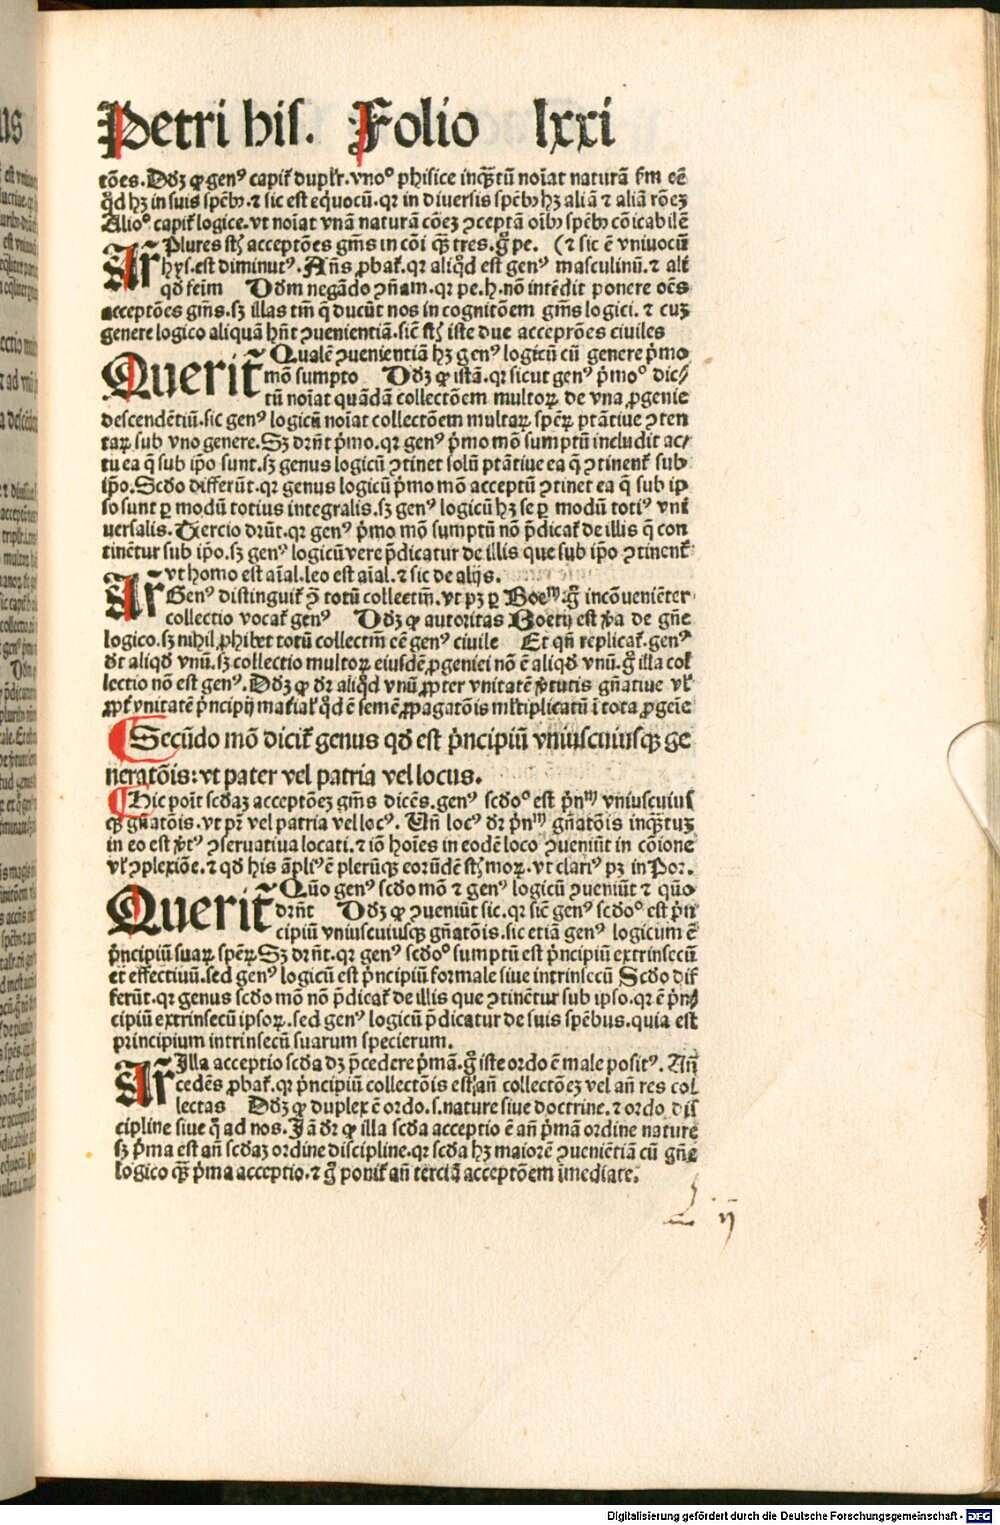 Petri hiſ. Folio lxxi
tōes. Dōꝫ ꝙ genꝰ capit̄ duplr̄. vnoº phiſice inqꝫtū noīat naturā ſm eē
qd̄ hꝫ in ſuis ſpēbꝰ. ⁊ ſic eſt equocū. qꝛ in diuerſis ſpēbꝰ hꝫ aliā ⁊ aliā rōeꝫ
Alioº capit̄ logice. vt noīat vnā naturā cōeꝫ ꝯceptā oībꝰ ſpēbꝰ cōicabilē
Ar̄ Plures ſt̄ acceptōes gn̄is in cōi qꝫ tres. g̊ pe. (⁊ ſic ē vniuocū
hyſ. eſt diminutꝰ. Añs ꝓbat̄. qꝛ aliqd̄ eſt genꝰ maſculinū. ⁊ alit̄
qd̄ feim Dōm negādo ꝯñam. qꝛ pe. h. nō intēdit ponere oēs
acceptōes gn̄is. ſꝫ illas tm̄ q̄ ducūt nos in cognitōem gn̄is logici. ⁊ cuꝫ
genere logico aliquā hn̄t ꝯuenientiā. ſic̄ ſt̄ iſte due acceprōes ciuiles
Querit̄ Qualē ꝯuenientiā hꝫ genꝰ logicū cū genere p̄mo
mō ſumpto Dōꝫ ꝙ iſtā. qꝛ ſicut genꝰ p̄moº dic⸗
tū noīat quādā collectōem multoꝝ de vna ꝓgenie
deſcendētiū. ſic genꝰ logicū noīat collectōem multaꝝ ſpēꝝ ptātiue ꝯten
taꝝ ſub vno genere. Sꝫ drn̄t p̄mo. qꝛ genꝰ p̄mo mō ſumptū includit ac⸗
tu ea q̄ ſub ip̄o ſunt. ſꝫ genus logicū ꝯtinet ſolū ptātiue ea q̄ ꝯtinent̄ ſub
ip̄o. Scd̄o differūt. qꝛ genus logicū p̄mo mō acceptū ꝯtinet ea q̄ ſub ip
ſo ſunt ꝑ modū totius integralis. ſꝫ genꝰ logicū hꝫ ſe ꝑ modū totiꝰ vni
uerſalis. Tercio drūt. qꝛ genꝰ p̄mo mō ſumptū nō p̄dicat̄ de illis q̄ con
tinētur ſub ip̄o. ſꝫ genꝰ logicū vere p̄dicatur de illis que ſub ip̄o ꝯtinent̄
vt homo eſt aīal. leo eſt aīal. ⁊ ſic de alijs.
Ar̄ Genꝰ diſtinguit̄ ꝯ̄ totū collectm̄. vt pꝫ ꝑ Boeᵐ. g̊ incōueniēter
collectio vocat̄ genꝰ Dōꝫ ꝙ autoritas Boetij eſt v̄a de gn̄e
logico. ſꝫ nihil ꝓhibet totū collectm̄ eē genꝰ ciuile Et qn̄ replicat̄. genꝰ
dt̄ aliqd̄ vnū. ſꝫ collectio multoꝝ eiuſdē ꝓgeniei nō ē aliqd̄ vnū. g̊ illa col
lectio nō eſt genꝰ. Dōꝫ ꝙ dr̄ aliqd̄ vnū ꝓpter vnitatē v̄tutis gn̄atiue vl̄
ꝓpt̄ vnitatē p̄ncipij mat̄ial̄ qd̄ ē ſemē ꝓpagatōis ml̄tiplicatū ī tota ꝓgēie
Secūdo mō dicit̄ genus qd̄ eſt p̄ncipiū vniuſcuiuſqꝫ ge
neratōis: vt pater vel patria vel locus.
Hic poīt ſcd̄aꝫ acceptōeꝫ gn̄is dicēs. genꝰ ſcd̄oº eſt p̄nᵐ vniuſcuiuſ
qꝫ gn̄atōis. vt pr̄ vel patria vel locꝰ. Vn̄ locꝰ dr̄ p̄nᵐ gn̄atōis inqꝫtuꝫ
in eo eſt v̄tꝰ ꝯſeruatiua locati. ⁊ iō hoīes in eodē loco ꝯueniūt in cōione
vl̄ ꝯplexiōe. ⁊ qd̄ his āpliꝰ ē pleruqꝫ eorūdē ſt̄ moꝝ. vt clariꝰ pꝫ in Por.
Querit̄ Quō genꝰ ſcd̄o mō ⁊ genꝰ logicū ꝯueniūt ⁊ quō
drn̄t Dōꝫ ꝙ ꝯueniūt ſic. qꝛ ſic̄ genꝰ ſcd̄oº eſt p̄n
cipiū vniuſcuiuſqꝫ gn̄atōis. ſic etiā genꝰ logicum ē
p̄ncipiū ſuaꝝ ſpēꝝ. Sꝫ drn̄t. qꝛ genꝰ ſcd̄oº ſumptū eſt p̄ncipiū extrinſecū
et effectiuū. ſed genꝰ logicū eſt p̄ncipiū formale ſiue intrinſecū Scd̄o dif
ferūt. qꝛ genus ſcd̄o mō nō p̄dicat̄ de illis que ꝯtinētur ſub ipſo. qꝛ ē p̄n⸗
cipiū extrinſecū ipſoꝝ. ſed genꝰ logicū p̄dicatur de ſuis ſpēbus. quia eſt
principium intrinſecū ſuarum ſpecierum.
Ar̄ Illa acceptio ſcd̄a dꝫ p̄cedere p̄mā. g̊ iſte ordo ē male poſitꝰ. Añ
cedēs ꝓbat̄. qꝛ p̄ncipiū collectōis eſt añ collectōeꝫ vel añ res col
lectas Dōꝫ ꝙ duplex ē ordo. ſ. nature ſiue doctrine. ⁊ ordo diſ
cipline ſiue q̄ ad nos. Iā dr̄ ꝙ illa ſcd̄a acceptio ē añ p̄mā ordine nature
ſꝫ p̄ma eſt añ ſcd̄aꝫ ordine diſcipline. qꝛ ſcd̄a hꝫ maiorē ꝯueniētiā cū gn̄e
logico qꝫ p̄ma acceptio. ⁊ g̊ ponit̄ añ terciā acceptōem īmediate.
Digitalisierung gefördert durch die Deutsche Forschungsgemeinschaft - DFG